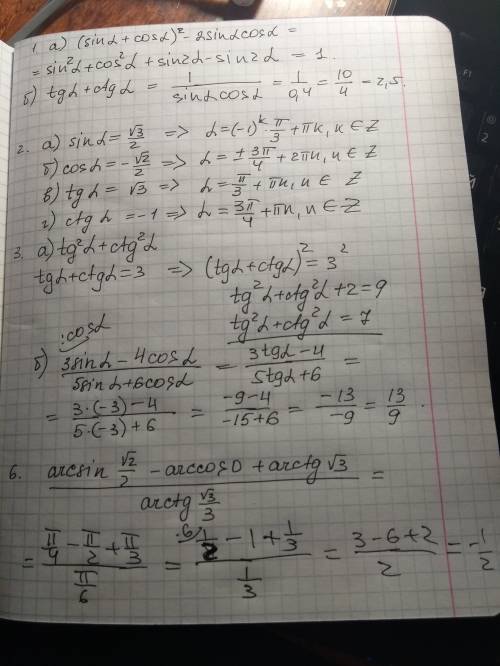 1. а) (sinα + cosα)² - 2sinαcosα =
= sin²α + cos²α + sin2α - sin2α = 1.
б) tgα + ctgα = 1/(sinαcosα) = 1/0,4 = 10/4 = 2,5.
2. а) sinα = √3/2 => α = (-1)^k · π/3 + πk, k ∈ Z
б) cosα = -√2/2 => α = ± 3π/4 + 2πn, n ∈ Z
в) tgα = √3 => α = π/3 + πn, n ∈ Z
г) ctgα = -1 => α = 3π/4 + πn, n ∈ Z
3. а) tg²α + ctg²α
tgα + ctgα = 3 => (tgα + ctgα)² = 3²
tg²α + ctg²α + 2 = 9
tg²α + ctg²α = 7
:cosα
б) (3sinα - 4cosα)/(5sinα + 6cosα) = (3tgα - 4)/(5tgα + 6) =
= (3·(-3) - 4)/(5·(-3) + 6) = (-9-4)/(-15+6) = -13/-9 = 13/9.
6. (arcsin √2/2 - arccos 0 + arctg √3)/(arctg √3/3) =
= (π/4 - π/2 + π/3)/(π/6) = (1/2 - 1 + 1/3)/(1/3) = (3-6+2)/2 = -1/2